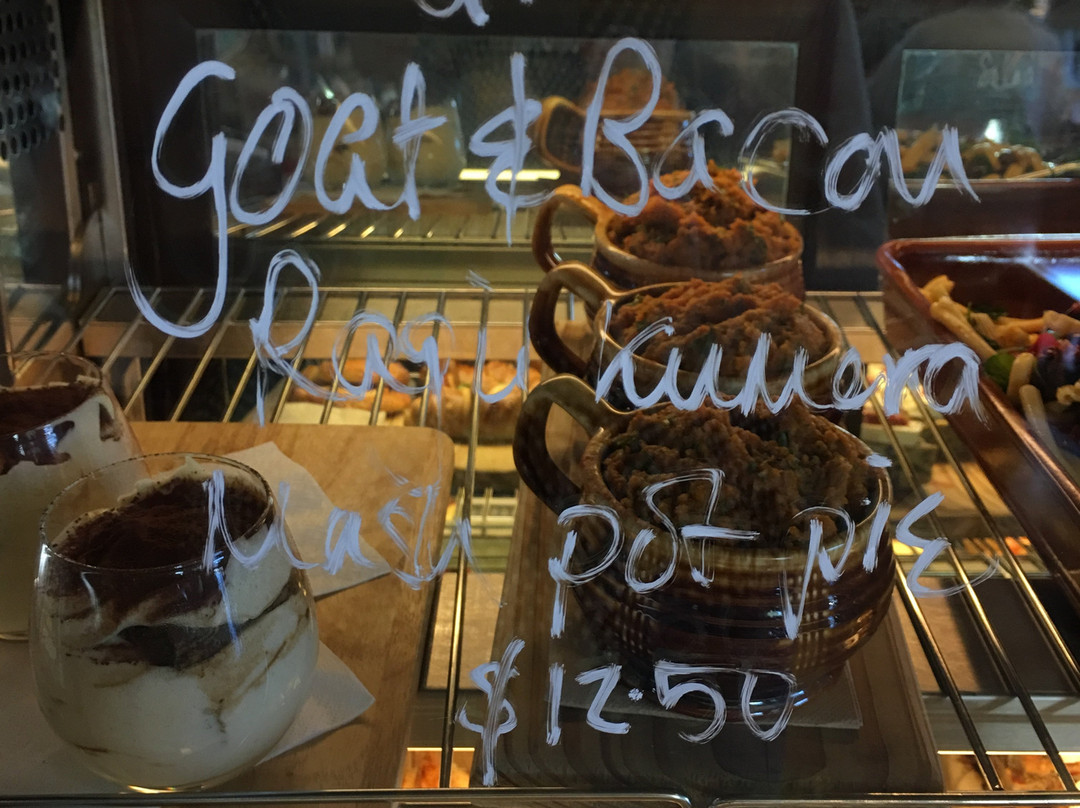 Goat & Bacon
Ragu kumera
Mash pot pie
$12.50